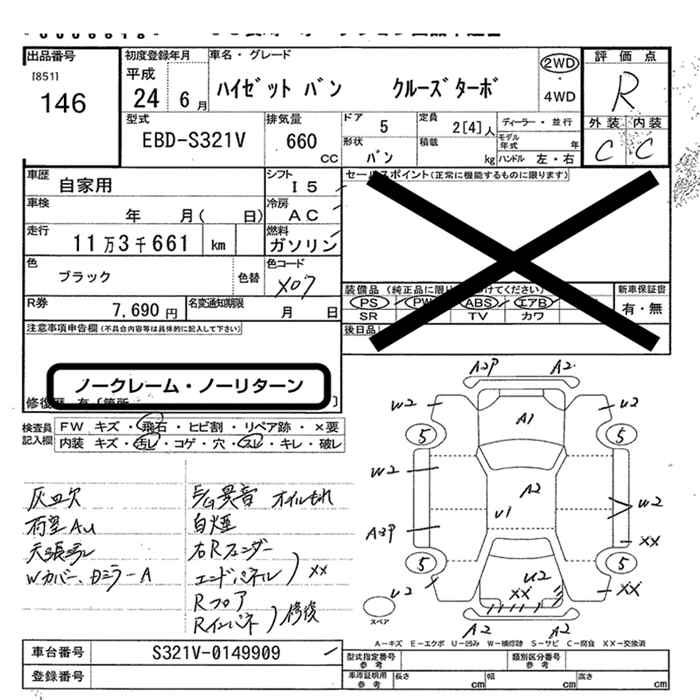 出品番号
[851]
146
初度登録年月
平成
24 6月
車名・グレード
ハイゼット バン クルーズターボ
2WD
4WD
評価点
R
型式
EBD-S321V
排気量
660
CC
ドア 5
定員 2[4]人
形状 バン
積載 kg
ディーラー・並行
モデル年式 年
ハンドル 左・右
外装 内装
C C
車歴 自家用
シフト I5
車検 年 月( 日)
冷房 AC
走行 11万3千661 km
燃料 ガソリン
色 ブラック
色替
色コード X07
R券 7,690円
名変通知期限 月 日
セールスポイント(正常に機能するものに限ります)
装備品(純正品に限り てください)
新車保証書
PS PW ABS エアB
SR TV カワ
有・無
後日品
注意事項申告欄(不具合内容等は具体的に記入して下さい)
ノークレーム・ノーリターン
修復歴 有〔箇所 〕
検査員記入欄
FW キズ・飛石・ヒビ割・リペア跡・×要
内装 キズ・汚レ・コゲ・穴・スレ・キレ・破レ
灰皿欠
天張ヨゴレ
異音 オイルもれ
白煙
右Rフェンダー
エンドパネル ) XX
Rフロア
Rインパネ ) 修復
A2P A2
W2 U2
A1
5 5
W2
A2
U1
W2
A3P
XX
5 5
U2 U2
XX XX
A2 A2
スペア
A-キズ E-エクボ U-凹み W-補修跡 S-サビ C-腐食 XX-交換済
車台番号 S321V-0149909
登録番号
型式指定番号 参考
類別区分番号 参考
車庫証明用 参考 長さ cm 幅 cm 高さ cm